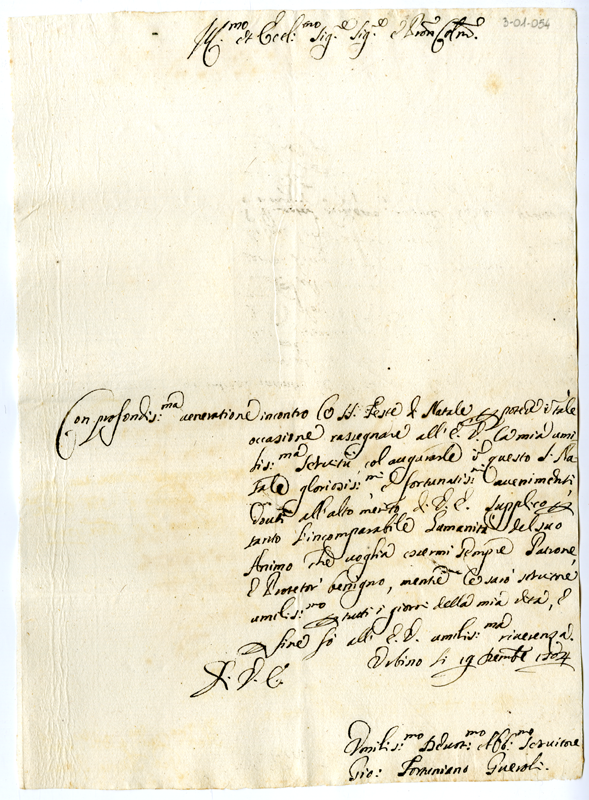 3-01-054
Ill.mo et Ecc.mo Sig.e Sig.e e Pron Col.mo
Con profondis:ma veneratione incontro le SS. Feste di Natale per poter i tale
occasione rassegnare all'E. V. la mia umi
lis:ma servitù, col augurarle i questo S. Na-
tale gloriosis:mi e fortunatis:mi avenimenti
dovuti all'alto merito di E. E. supplico per
tanto l'incomparabile Humanità del suo
Animo che voglia essermi sempre Patrone,
E Protetor benigno, mentre le sarò servitore
umilis:mo per tutti i giorni della mia vita, E
fine fò all E. V. umilis:ma riverenza.
Urbino li 19 Xembre 1704
D. V. E.
Umilis:mo Devot:mo et Obb:mo Servitore
Gio: Fortuniano Gueroli.